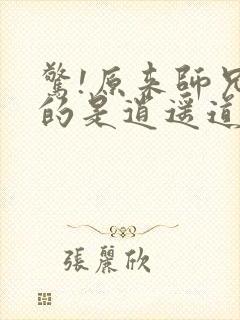 驚!原來師兄
的是道遥道
張麗欣